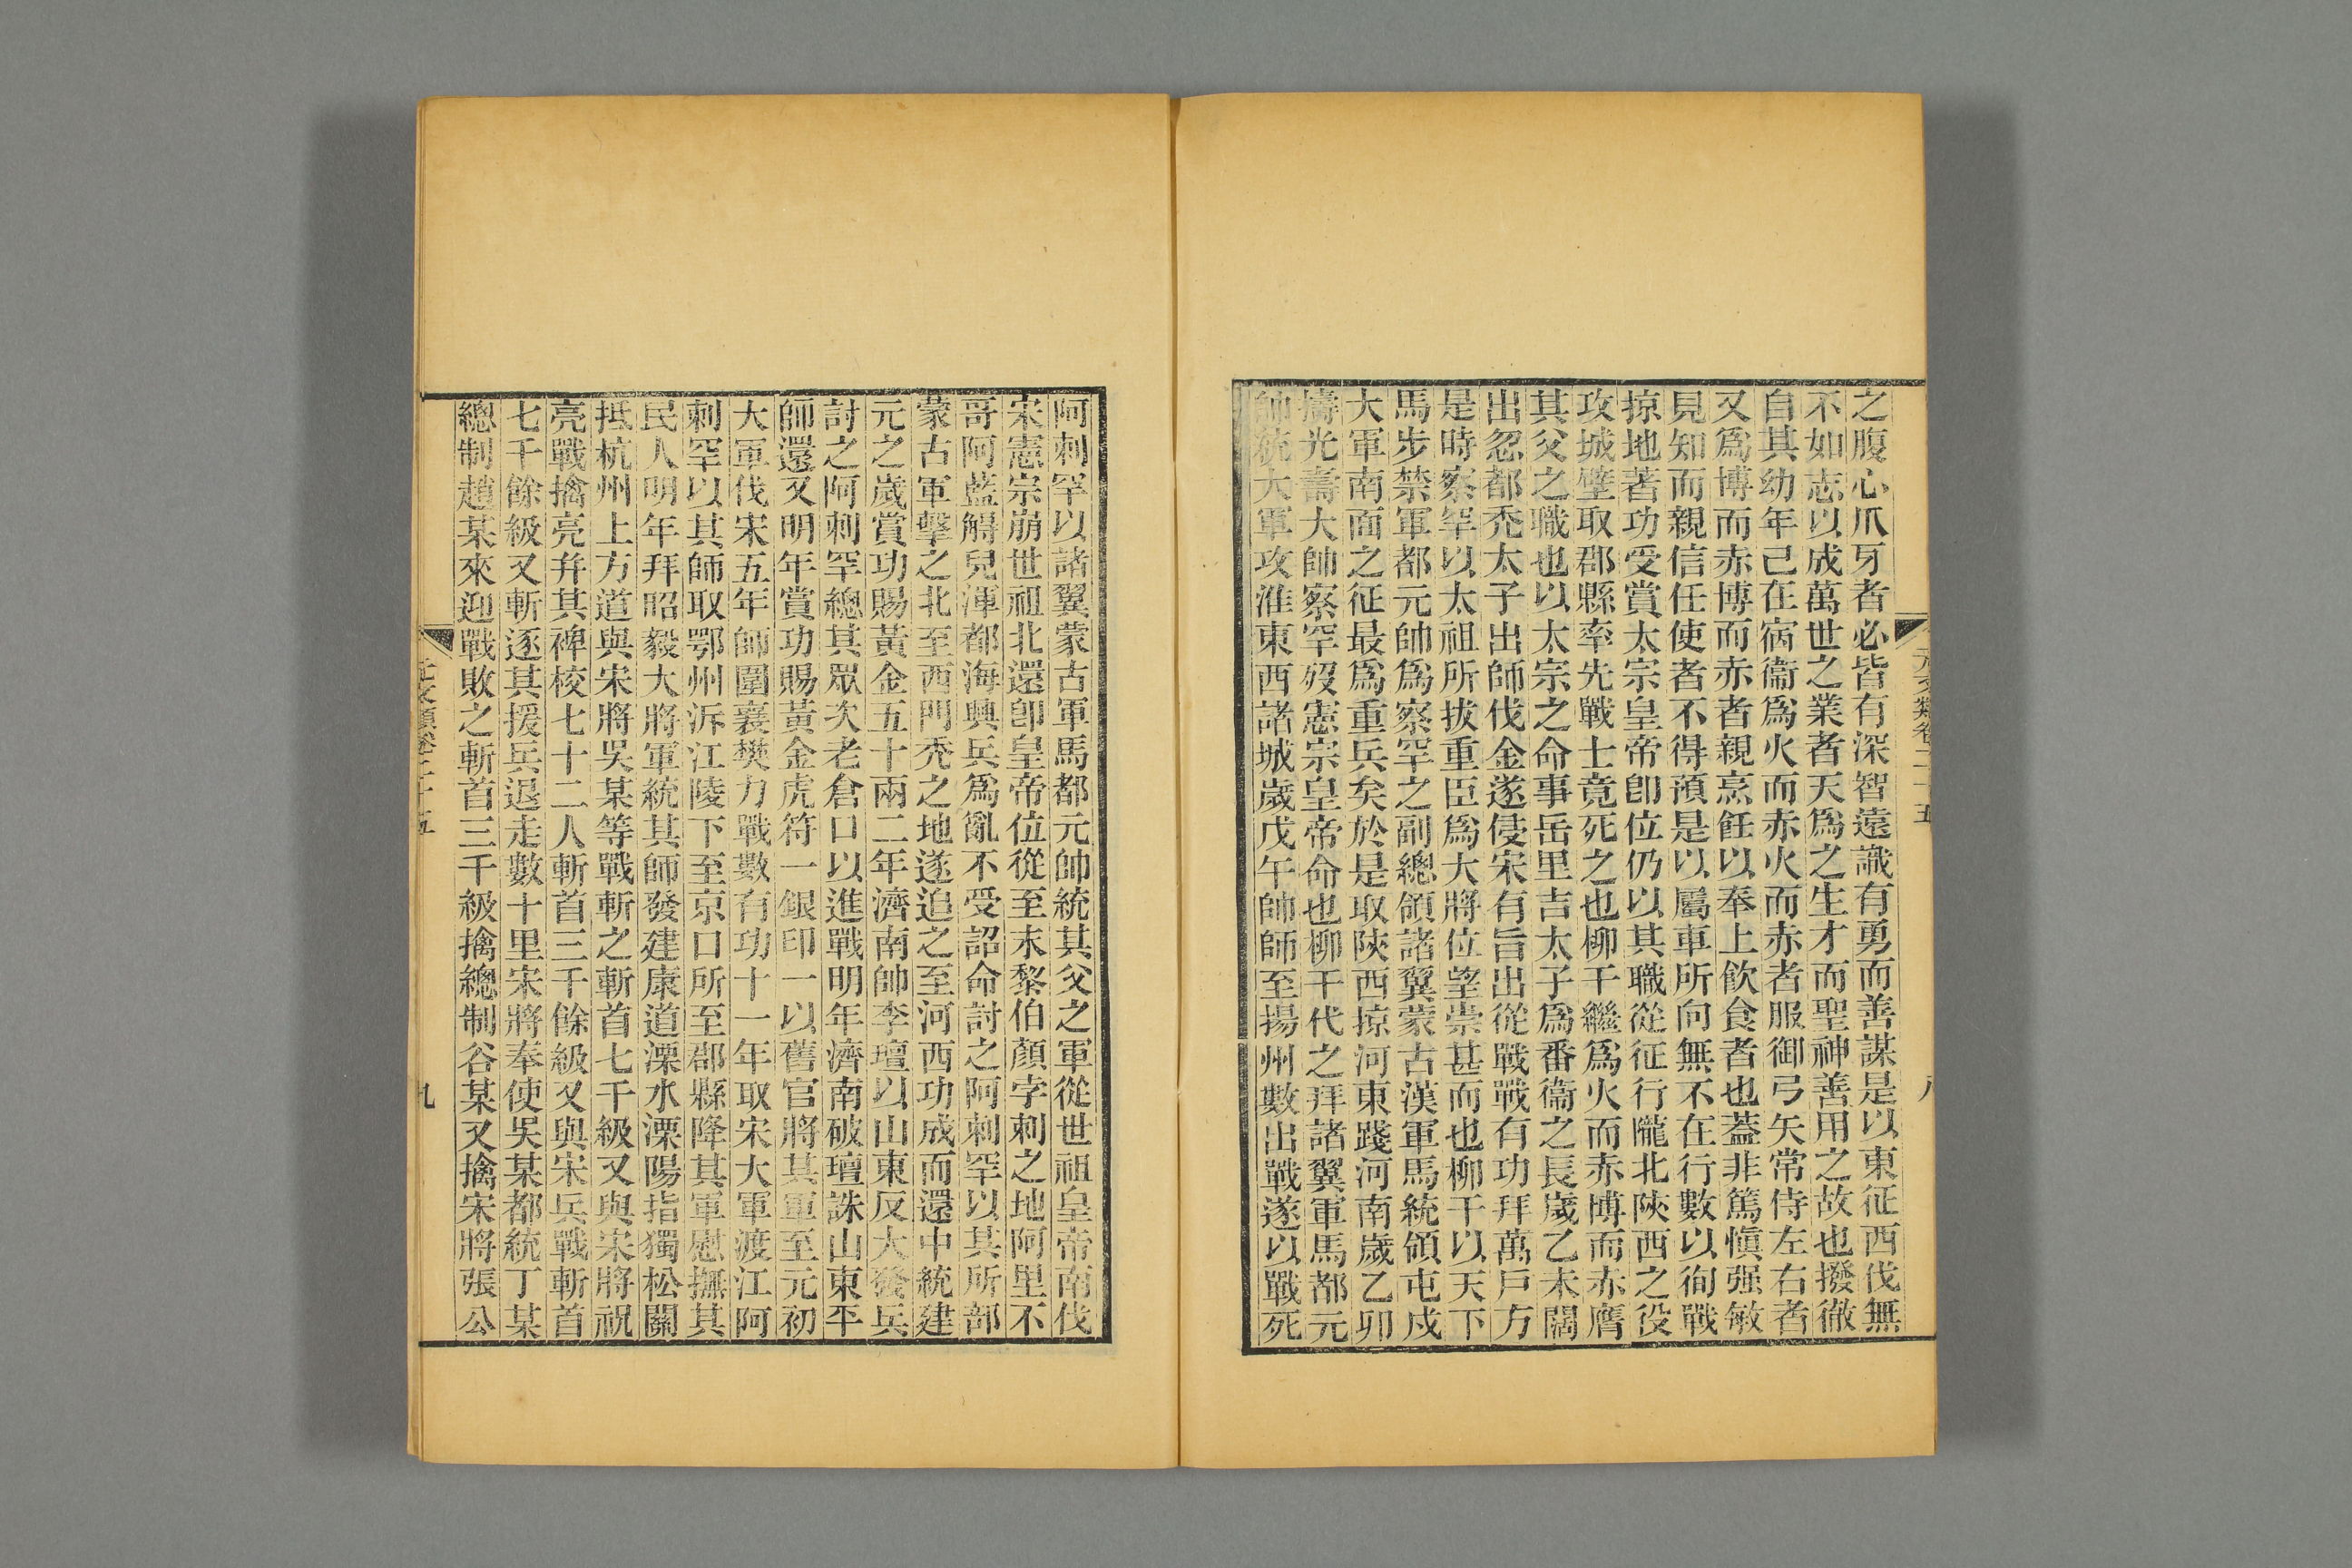 之腹心爪牙者必皆有深智遠識有勇而善謀是以東征西伐無
不如志以成萬世之業者天爲之生才而聖神善用之故也撥徹
自其幼年己在宿衞爲火而赤火而赤者服御弓矢常侍左右者
又爲博而赤博而赤者親烹飪以奉上飲食者也蓋非篤愼强敏
見知而親信任使者不得預是以屬車所向無不在行數以徇戰
掠地著功受賞太宗皇帝卽位仍以其職從征行隴北陝西之役
攻城壁取郡縣率先戰士竟死之也柳干繼爲火而赤博而赤膺
其父之職也以太宗之命事岳里吉太子爲番衞之長歲乙未闊
出忽都禿太子出師伐金遂侵宋有旨出從戰戰有功拜萬戸方
是時察罕以太祖所拔重臣爲大將位望崇甚而也柳干以天下
馬步禁軍都元帥爲察罕之副總領諸翼蒙古漢軍馬統領屯戍
大軍南面之征最爲重兵矣於是取陝西掠河東踐河南歲乙卯
擣光壽大帥察罕歿憲宗皇帝命也柳干代之拜諸翼軍馬都元
帥統大軍攻淮東西諸城歲戊午帥師至揚州數出戰遂以戰死
元文類卷二十五
八
阿刺罕以諸翼蒙古軍馬都元帥統其父之軍從世祖皇帝南伐
宋憲宗崩世祖北還卽皇帝位從至末黎伯顏孛刺之地阿里不
哥阿藍䚟兒渾都海興兵爲亂不受詔命討之阿刺罕以其所部
蒙古軍擊之北至西門禿之地遂追之至河西功成而還中統建
元之歲賞功賜黃金五十兩二年濟南帥李璮以山東反大發兵
討之阿刺罕總其眾次老倉口以進戰明年濟南破璮誅山東平
師還又明年賞功賜黃金虎符一銀印一以舊官將其軍至元初
大軍伐宋五年師圍襄樊力戰數有功十一年取宋大軍渡江阿
刺罕以其師取鄂州泝江陵下至京口所至郡縣降其軍慰撫其
民人明年拜昭毅大將軍統其師發建康道溧水溧陽指獨松關
抵杭州上方道與宋將吳某等戰斬之斬首七千級又與宋將祝
亮戰擒亮幷其裨校七十二人斬首三千餘級又與宋兵戰斬首
七千餘級又斬逐其援兵退走數十里宋將奉使吳某都統丁某
總制趙某來迎戰敗之斬首三千級擒總制谷某又擒宋將張公
元文類卷二十五
九